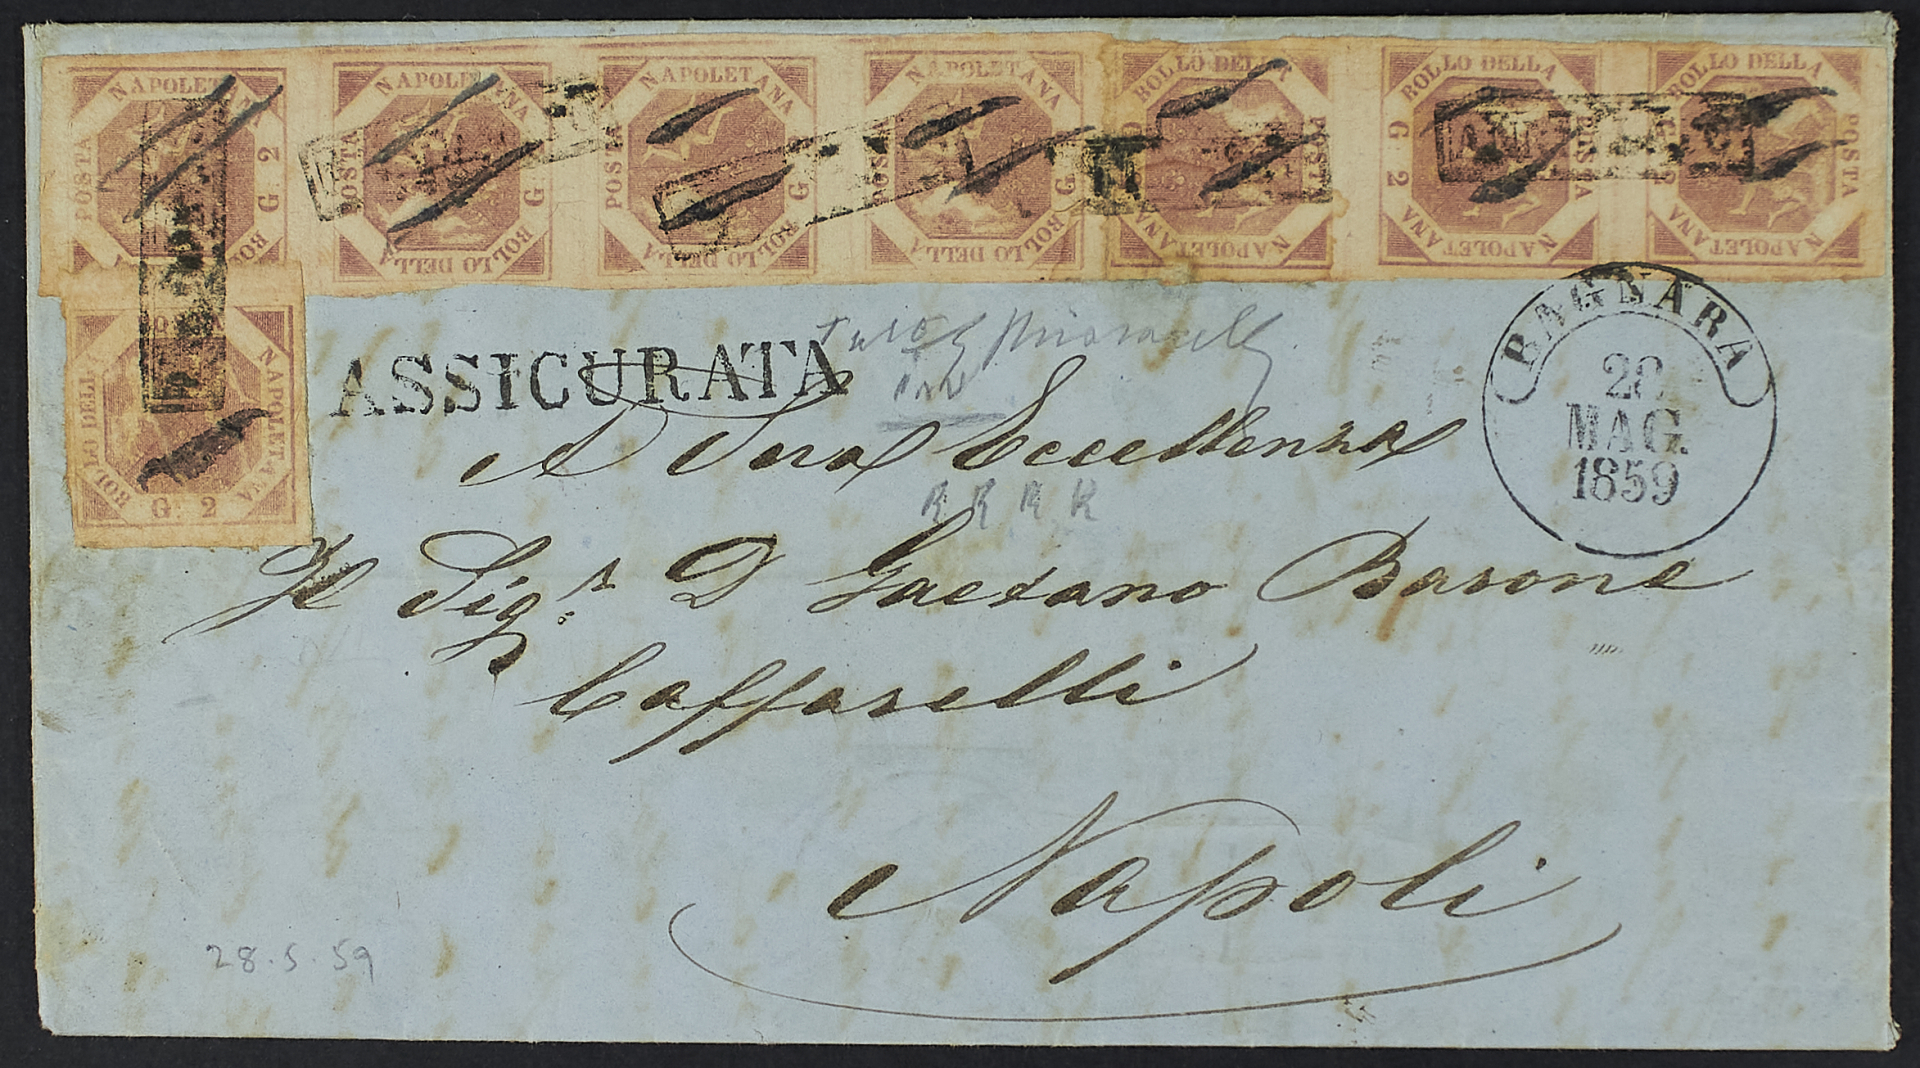 POSTA NAPOLETANA G 2 BOLLO DELLA
POSTA NAPOLETANA G BOLLO DELLA
POSTA NAPOLETANA G BOLLO DELLA
POSTA NAPOLETANA G BOLLO DELLA
BOLLO DELLA POSTA NAPOLETANA
G 2 BOLLO DELLA POSTA NAPOLETANA
BOLLO DELLA POSTA NAPOLETANA
BOLLO DELLA NAPOLETANA G 2
ASSICURATA
BAGNARA
28
MAG.
1859
A Sua Eccellenza
R R R R
Il Sigr. D Gaetano Barone
Caffarelli
Napoli
28.5.59